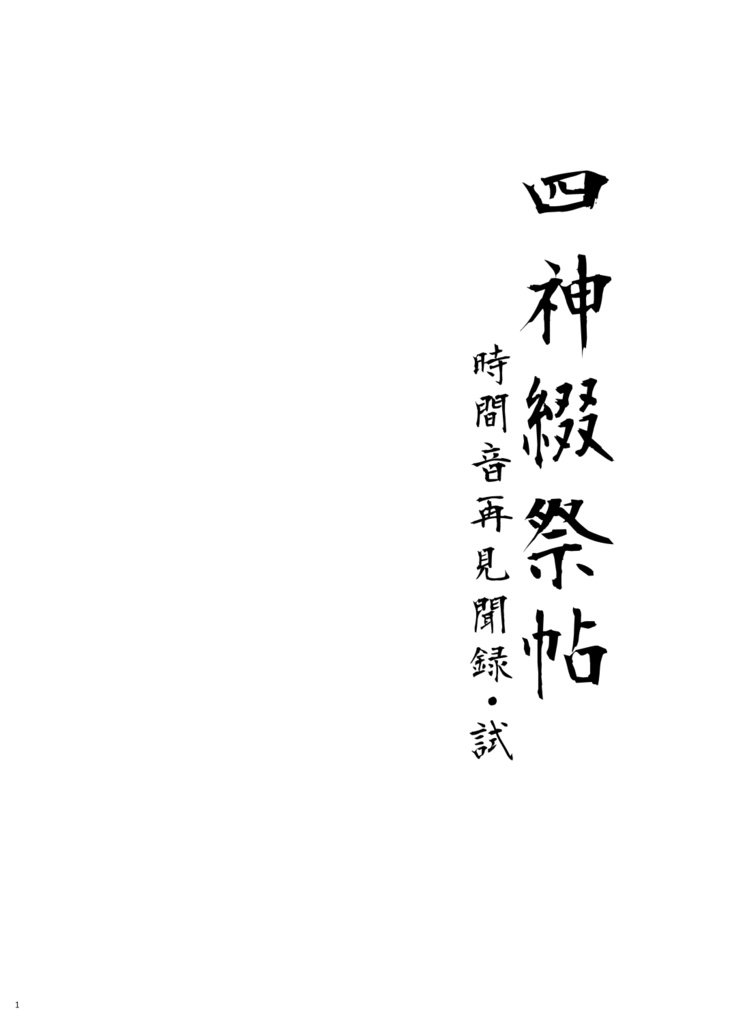 四神綴祭帖
時間音再見聞録・試
1